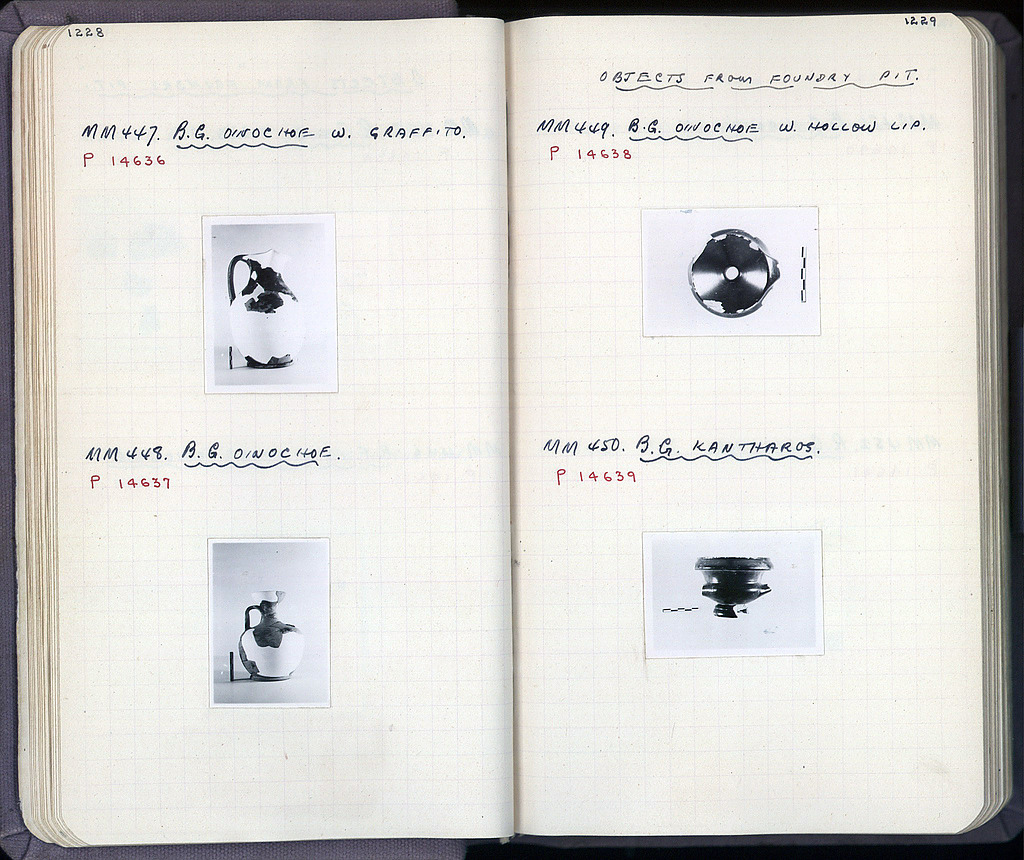 1228
MM447. B.G. OINOCHOE W. GRAFFITO.
P 14636
MM448. B.G. OINOCHOE.
P 14637
1229
OBJECTS FROM FOUNDRY PIT.
MM449. B.G. OINOCHOE W. HOLLOW LIP.
P 14638
MM450. B.G. KANTHAROS.
P 14639